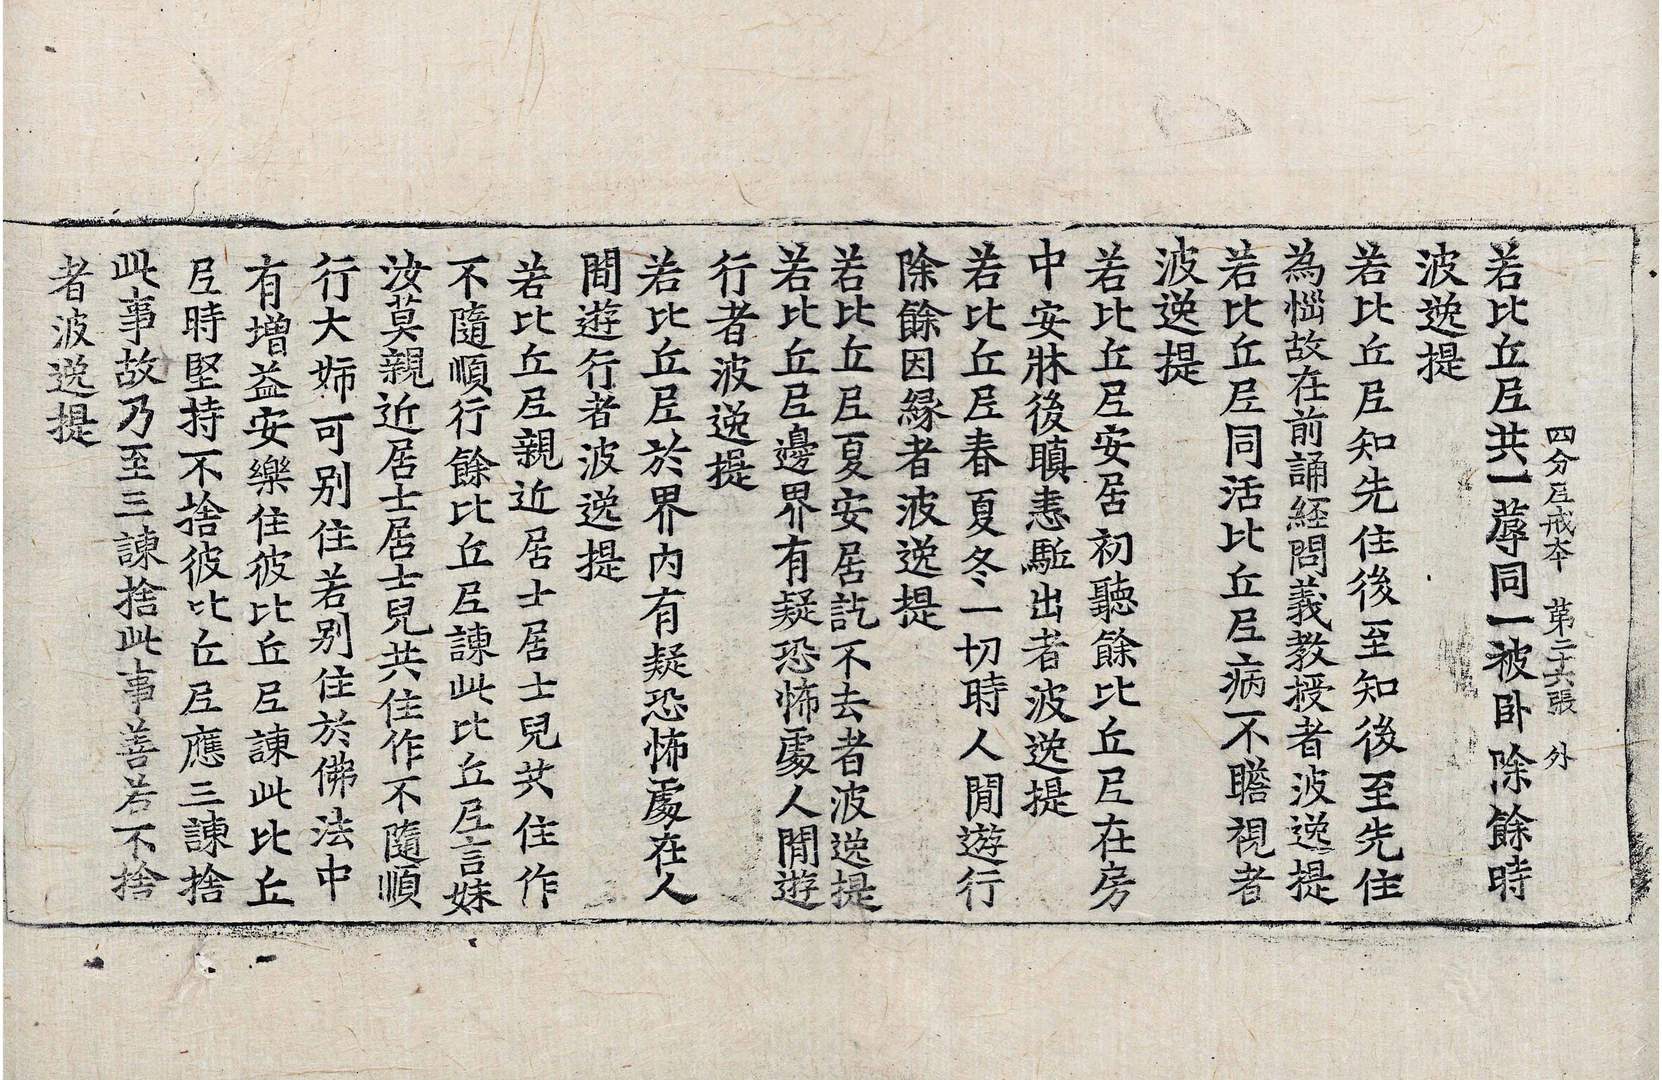 四分尼戒本 第二十六張 外
若比丘尼共一蓐同一被卧除餘時
波逸提
若比丘尼知先住後至知後至先住
為惱故在前誦經問義教授者波逸提
若比丘尼同活比丘尼病不瞻視者
波逸提
若比丘尼安居初聽餘比丘尼在房
中安牀後瞋恚駈出者波逸提
若比丘尼春夏冬一切時人間遊行
除餘因緣者波逸提
若比丘尼夏安居訖不去者波逸提
若比丘尼邊界有疑恐怖處人間遊
行者波逸提
若比丘尼於界內有疑恐怖處在人
間遊行者波逸提
若比丘尼親近居士居士兒共住作
不隨順行餘比丘尼諫此比丘尼言妹
汝莫親近居士居士兒共住作不隨順
行大姊可別住若別住於佛法中
有增益安樂住彼比丘尼諫此比丘
尼時堅持不捨彼比丘尼應三諫捨
此事故乃至三諫捨此事善若不捨
者波逸提